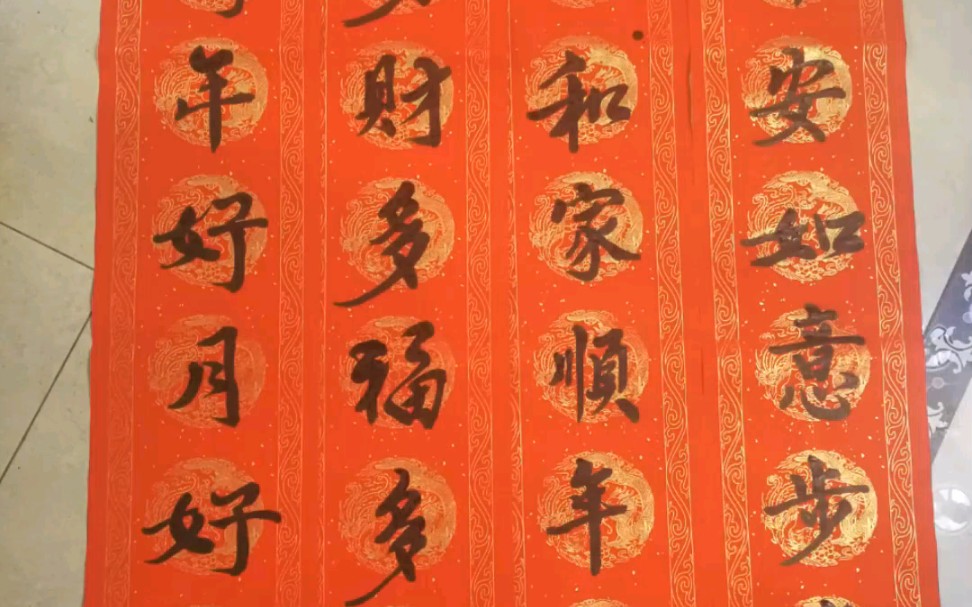 年好月好
財多福多
和家順年
安如意步